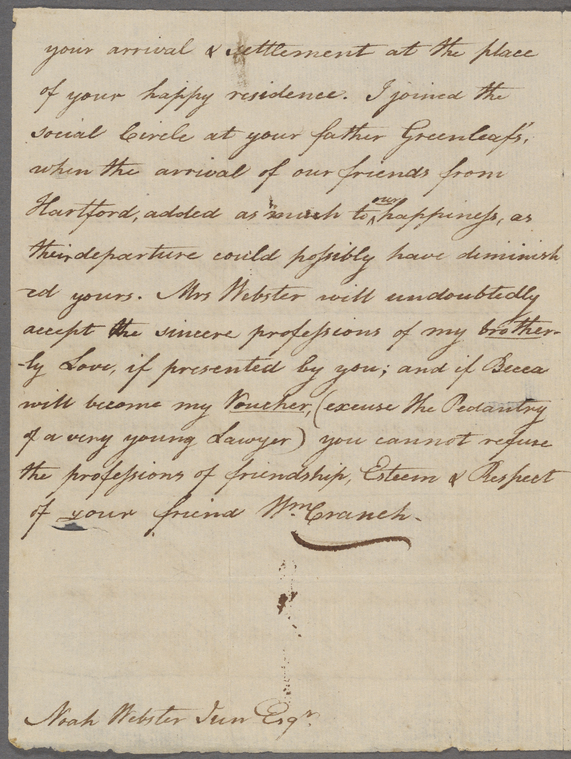 your arrival & settlement at the place
of your happy residence. I joined the
social Circle at your father Greenleaf's,
when the arrival of our friends from
Hartford, added as much to our happiness, as
their departure could possibly have diminish
ed yours. Mrs Webster will undoubtedly
accept the sincere professions of my brother-
ly Love, if presented by you; and if Becca
will become my Voucher, (excuse the Pedantry
of a very young Lawyer) you cannot refuse
the professions of friendship, Esteem & Respect
of your friend Wm Cranch.
Noah Webster Jun Esqr.